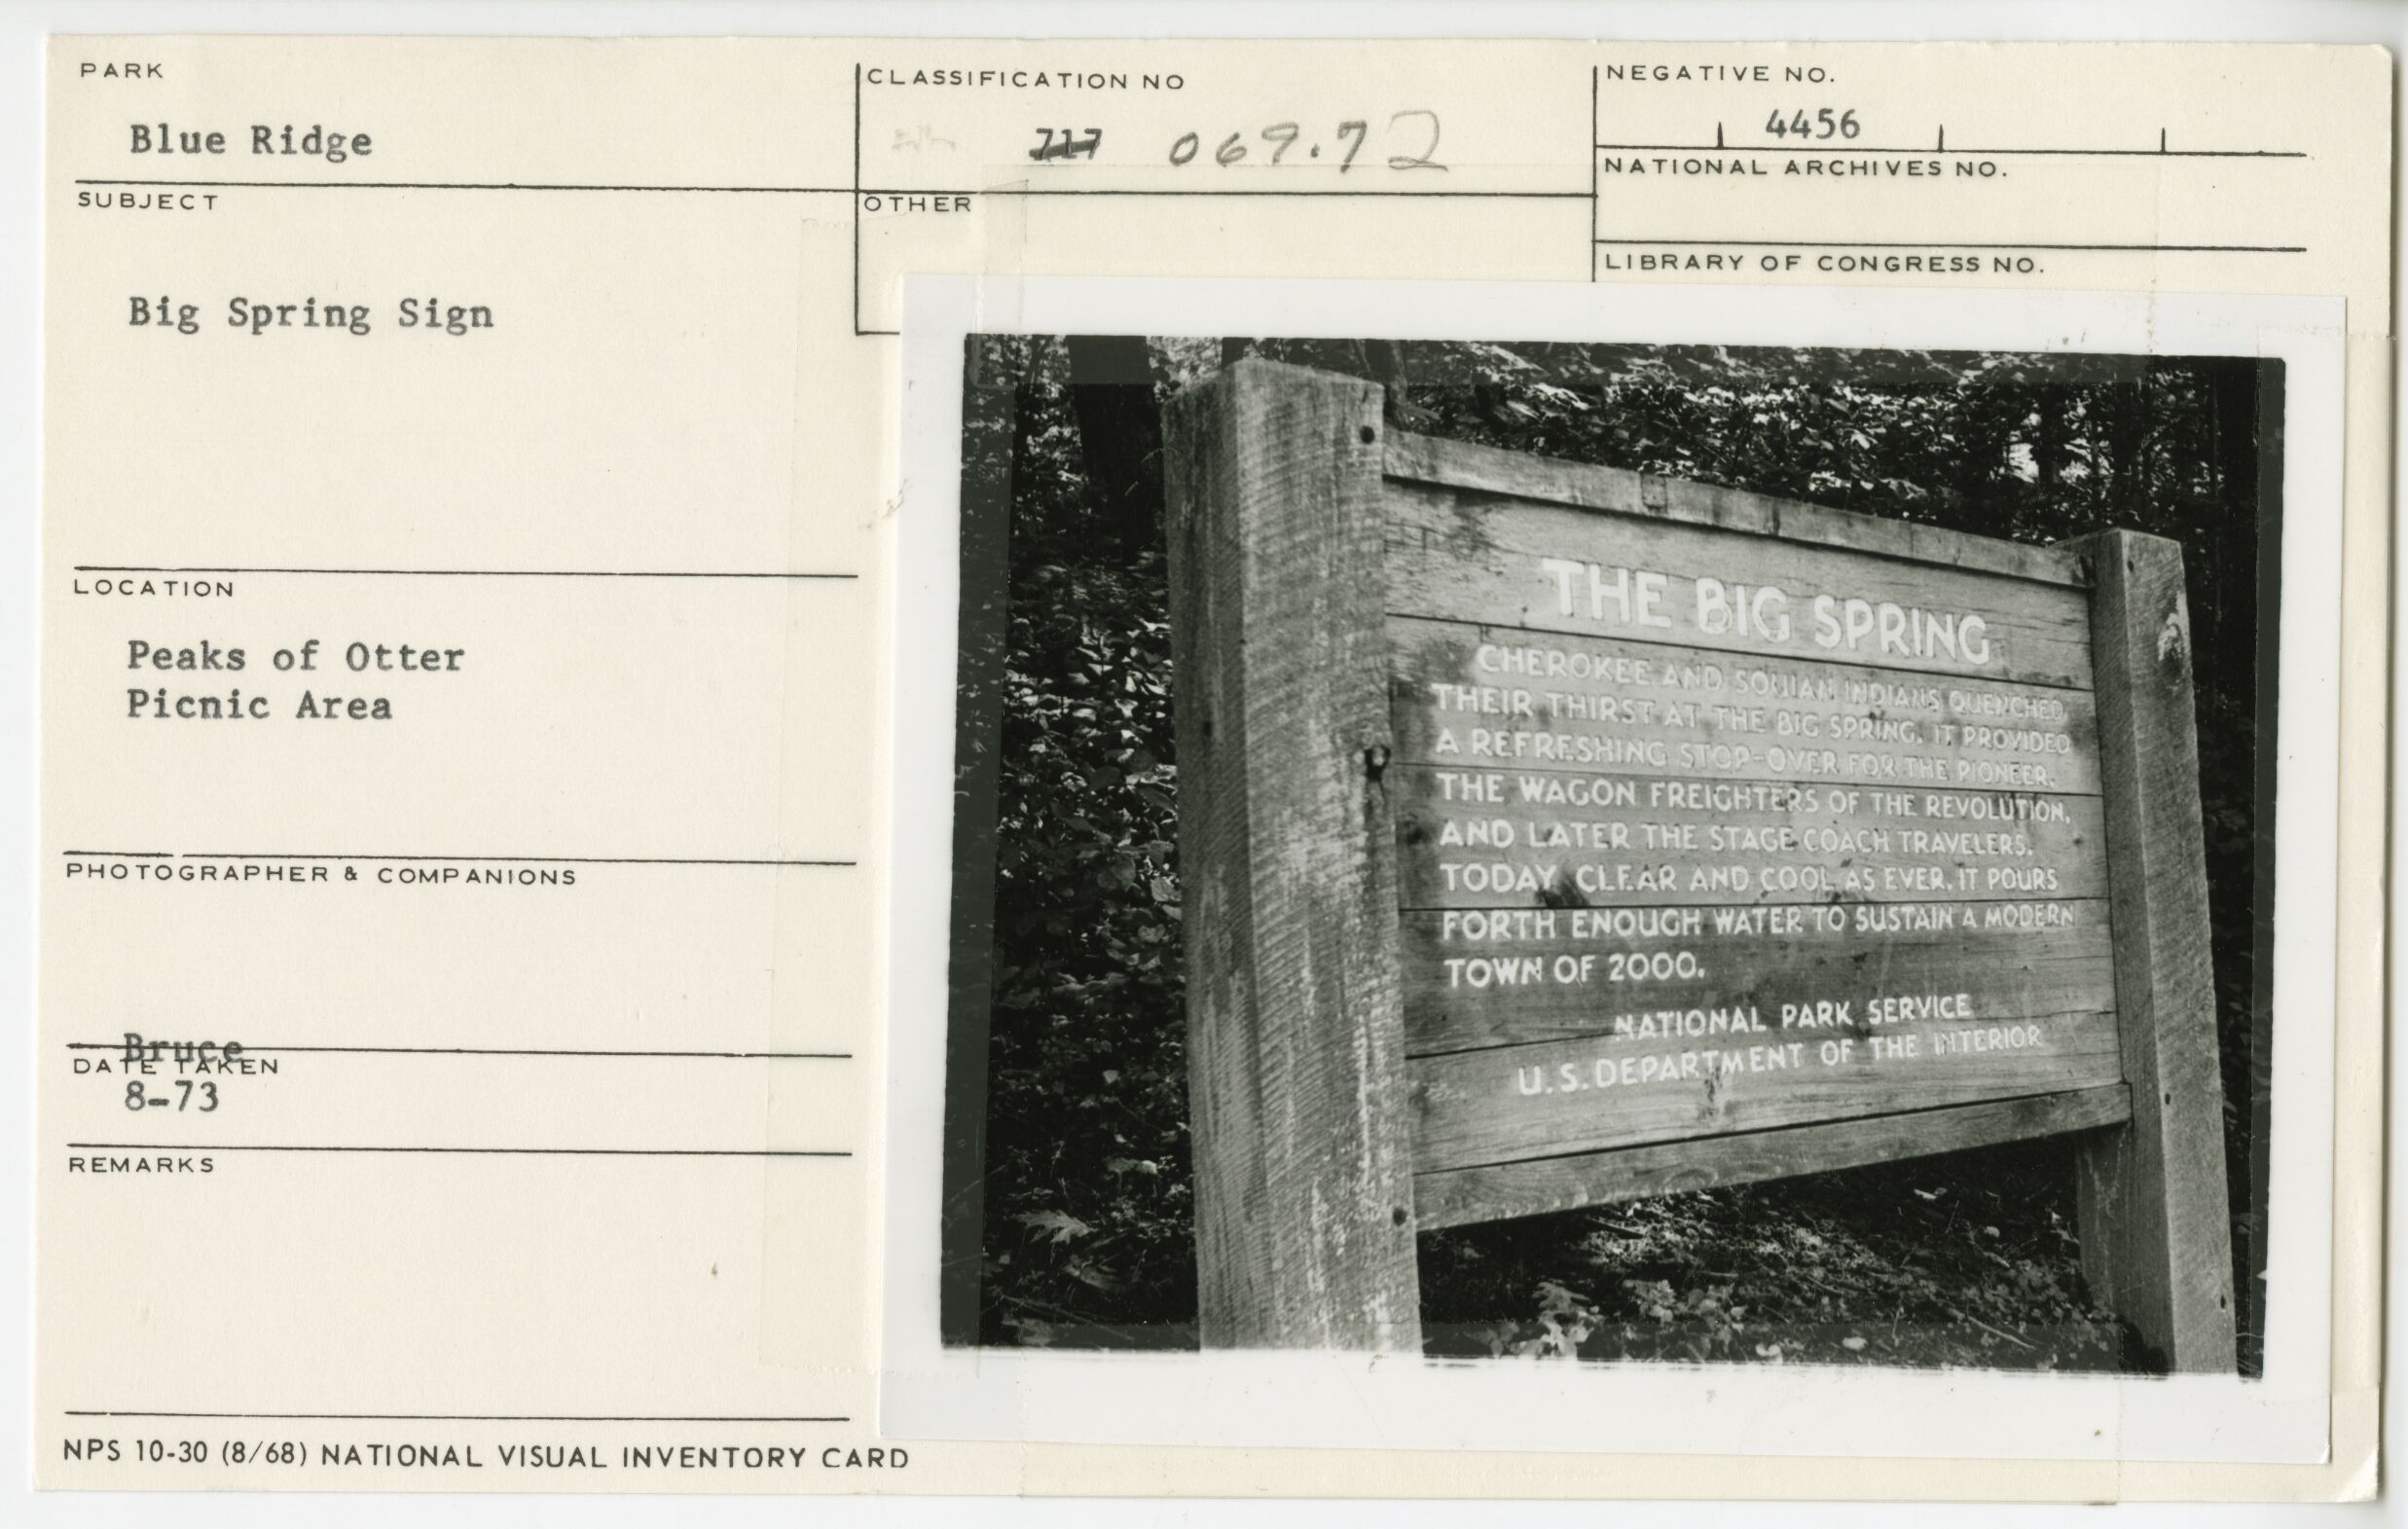 PARK
Blue Ridge
CLASSIFICATION NO
717 069.72
NEGATIVE NO.
4456
NATIONAL ARCHIVES NO.
SUBJECT
OTHER
LIBRARY OF CONGRESS NO.
Big Spring Sign
LOCATION
Peaks of Otter
Picnic Area
PHOTOGRAPHER & COMPANIONS
Bruce
DATE TAKEN
8-73
REMARKS
NPS 10-30 (8/68) NATIONAL VISUAL INVENTORY CARD
THE BIG SPRING
CHEROKEE AND SOUIAN INDIANS QUENCHED
THEIR THIRST AT THE BIG SPRING. IT PROVIDED
A REFRESHING STOP-OVER FOR THE PIONEER,
THE WAGON FREIGHTERS OF THE REVOLUTION,
AND LATER THE STAGE COACH TRAVELERS.
TODAY, CLEAR AND COOL AS EVER, IT POURS
FORTH ENOUGH WATER TO SUSTAIN A MODERN
TOWN OF 2000.
NATIONAL PARK SERVICE
U.S. DEPARTMENT OF THE INTERIOR